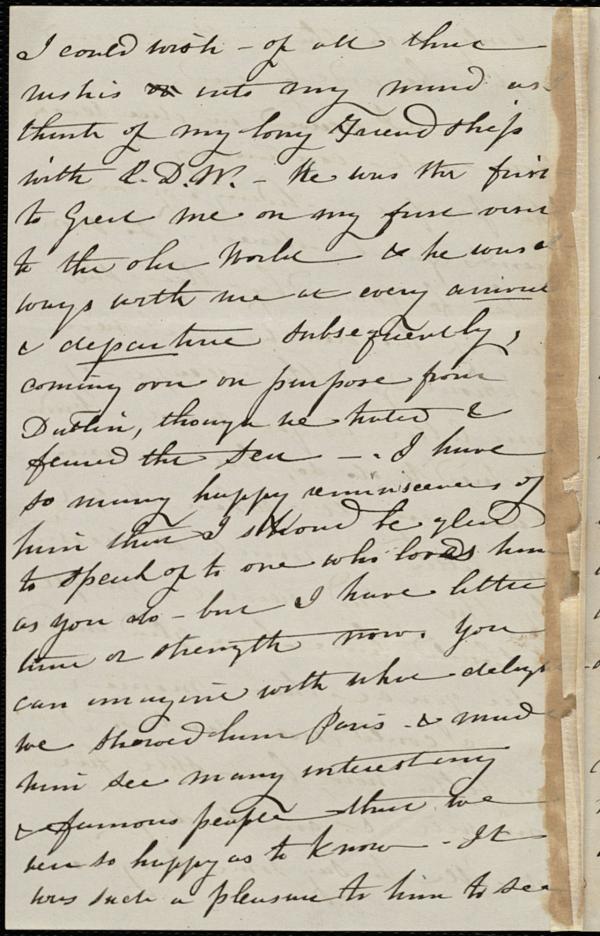 I could wish - of all that
rushes into my mind as I
think of my long Friendship
with R. D. W. - He was the first
to Greet me on my first visit
to the old World & he was al
ways with me at every arrival
& departure subsequently,
coming over on purpose from
Dublin, though he hated &
feared the sea -. I have
so many happy reminiscences of
him that I should be glad
to speak of to one who loves him
as you do - but I have little
time or strength now. You
can imagine with what delight
we showed him Paris - & made
him see many interesting
& famous people that we
were so happy as to know - It
was such a pleasure to him to see